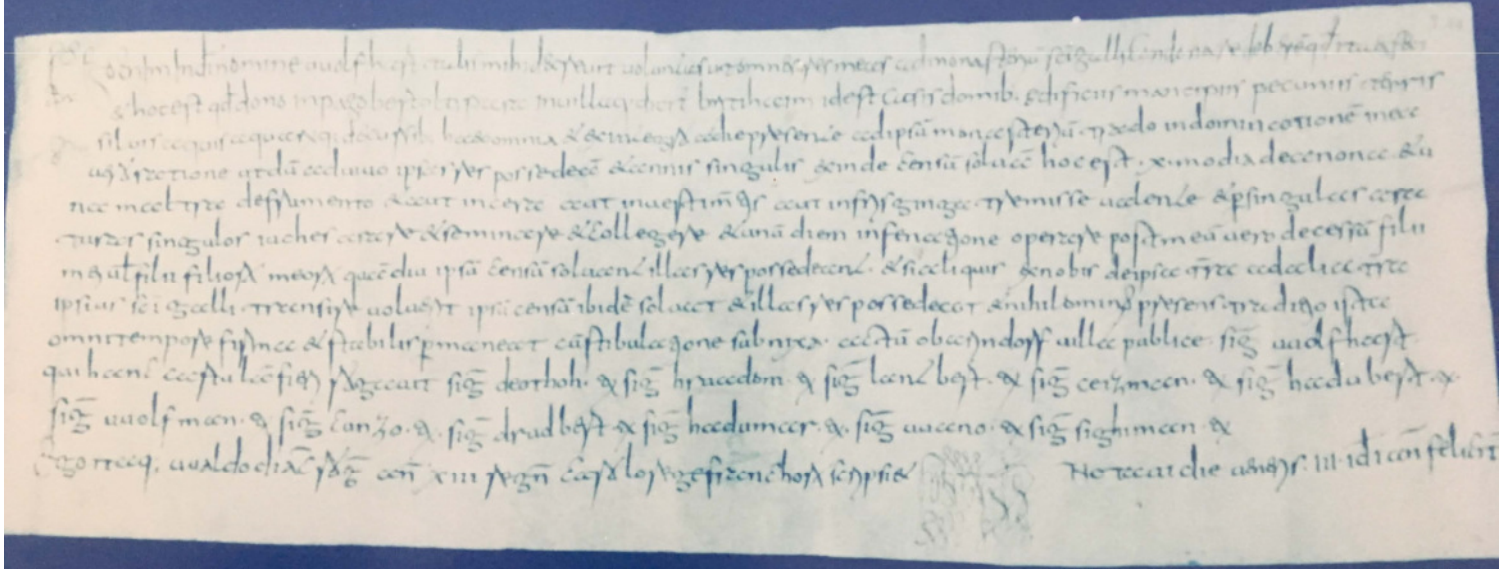 in dī nomine uuolfhart talis mihi decreuit uoluntas ut omnes res meas ad monasteriū sci galli condonare deberē qd ita feci
& hoc est qd dono in pago bertoltipara in uilla qui dicit idest casis domib. edificiis mancipiis pecuniis
siluis aquis aquarūq decursib. haec omnia & ex integra a die presente ad ipsū monasteriū trado in dominationē
ratione ut dū aduiuo ipsas res possedeā & annis singulis exinde censū soluā hoc est x modia de annona & u
na maltra de frumento & aut in cera aut in uestimtis aut in frisginga tremisse ualente & p singulas
turas singulos iuches arare & seminare & collegere & unā diem in fenatione operare post meū uero decessū filii
mei uel filii filiorū meorū quādiu ipsū censū soluant illas res possedeant & si aliquis ex nobis de ipsa tra ad alia tra
ipsius sci galli transire uoluerit ipsū censū ibidē soluat & illas res possedeat & nihilominus presens traditio ista
omni tempore firma & stabilis pmaneat cū stibulatione subnixa actū obarindorf uilla puplice sig uuolfhart
qui hanc cartulā fieri rogauit sig deothoh & sig hruadom & sig lantbert & sig cerzman & sig hadubert &
sig uuolfman & sig cunzo & sig drudbert & sig hadamar & sig uuano & sig sighiman &
Ego itaq. uualdo diac rog ann xiii regn carolo rege franchorū scripsi &
Notaui die ueneris iii id ian felicit